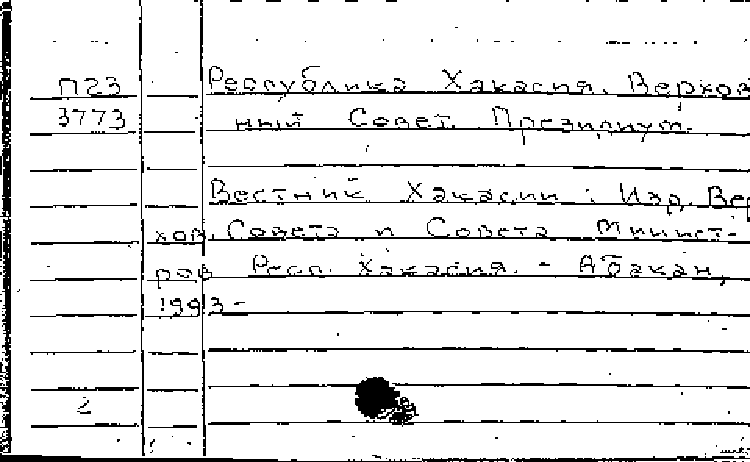 П23 Республика Хакасия. Верхов
3773 ный Совет. Президиум.
Вестник Хакасии : Изд. Вер
хов. Совета и Совета Минист-
ров Респ. Хакасия. - Абакан,
1993-
2